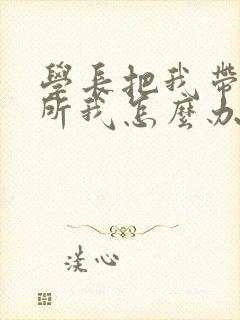 學長把我帶
所我怎麼办
淡心